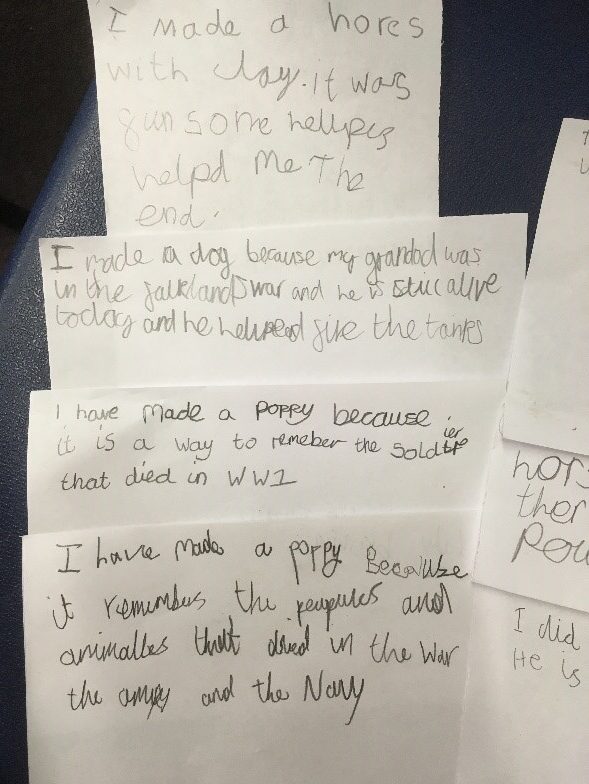 I made a hores
with clay. it was
fun some hellpers
helpd me The
end.
I made a dog because my grandad was
in the falklands war and he is still alive
today and he helped fire the tanks
I have made a poppy because
it is a way to remeber the soldier
that died in WW1
I have made a poppy Because
it remembers the and
animalles that died in the war
the army and the Navy
hors
ther
I did
He is